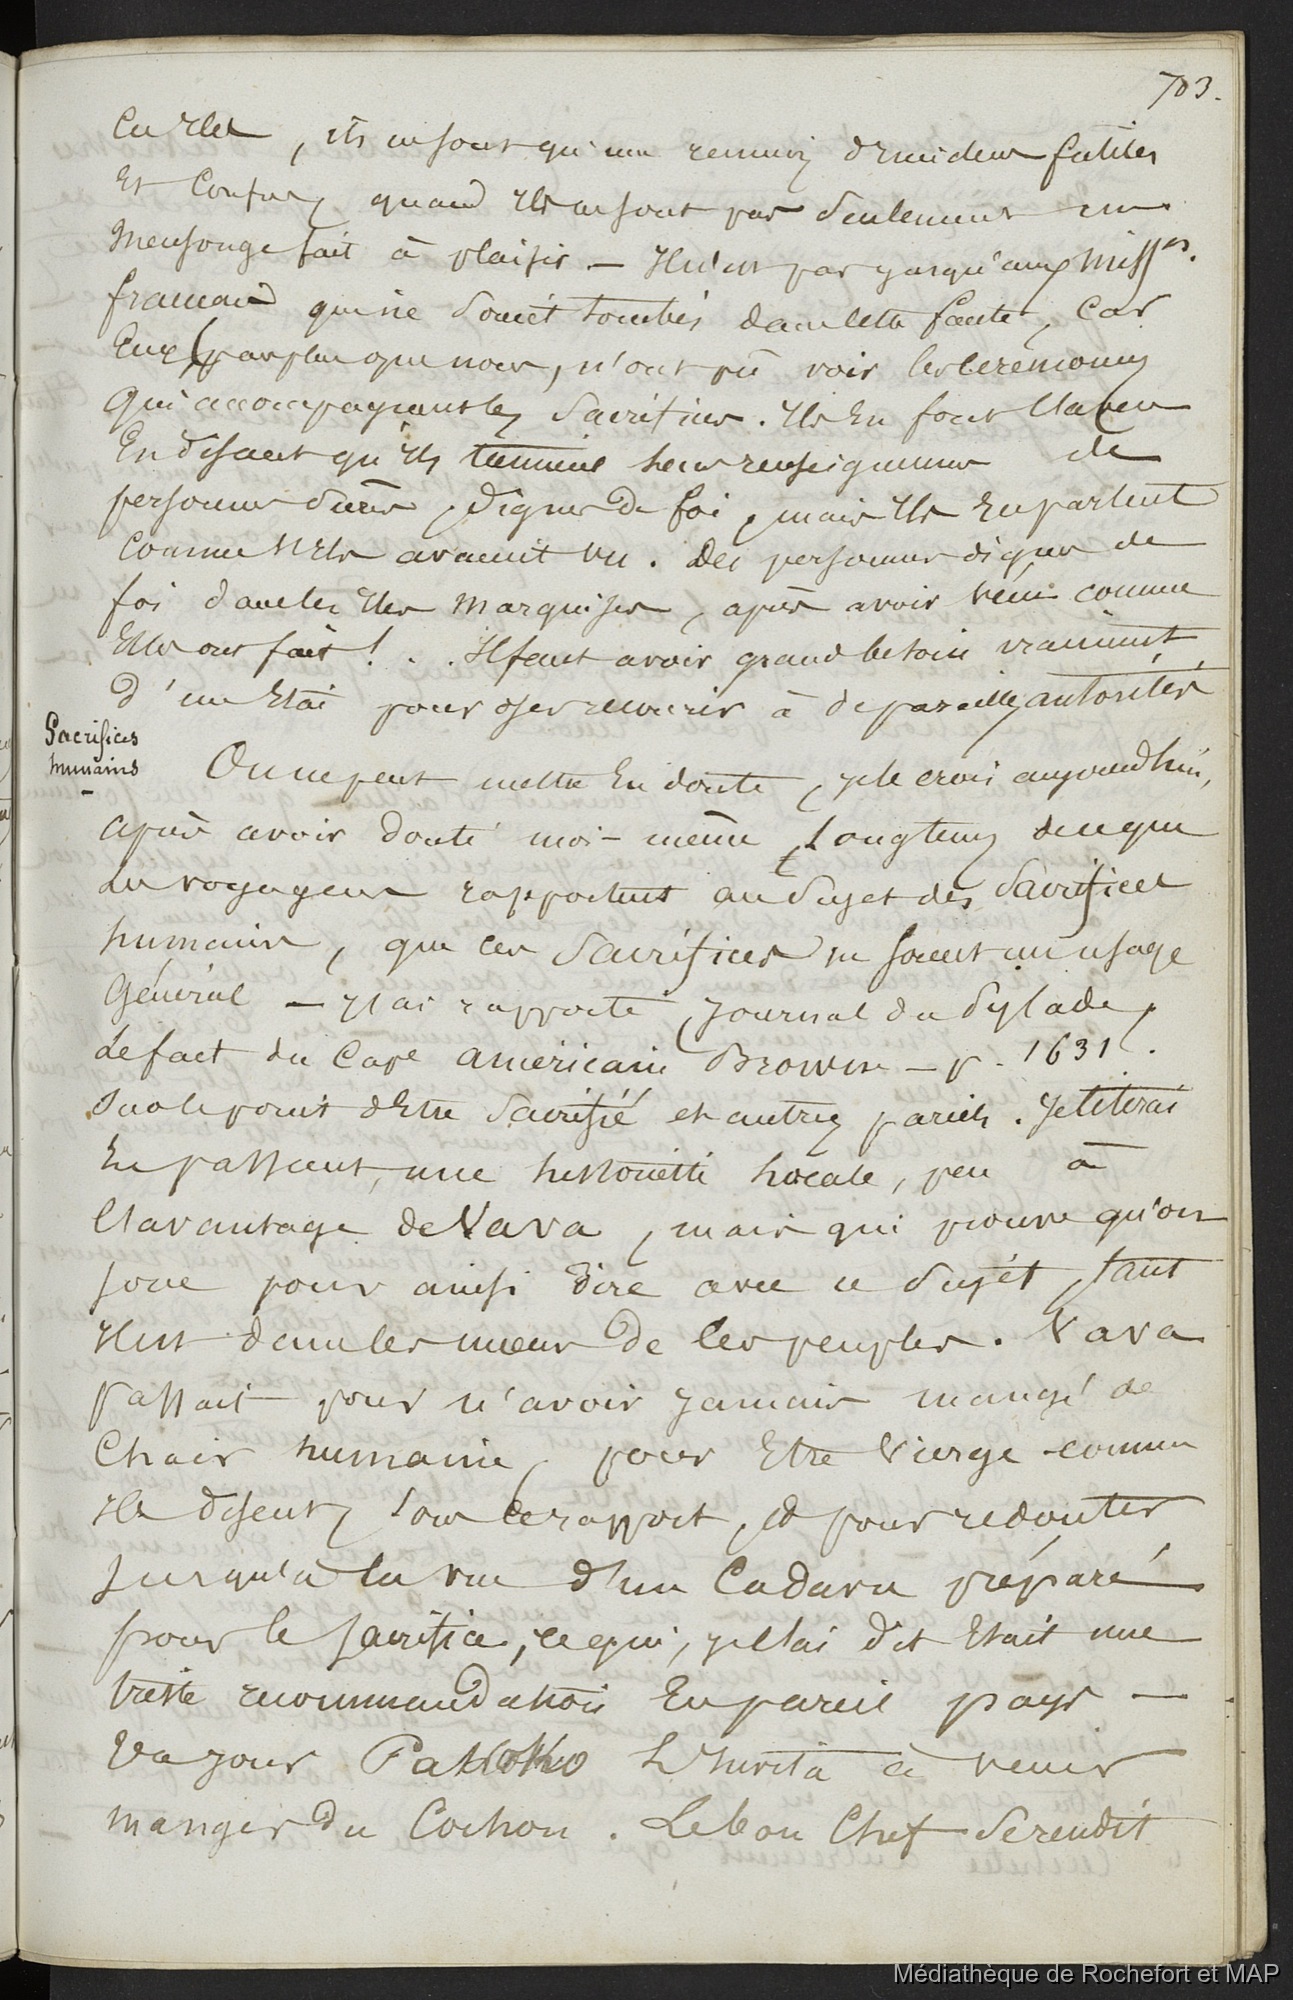 703.
ces Iles, ils ne sont qu'un remuis d'inideur futiles
Et Confus, quand Ils ne sont pas seulement un
mensonge fait à plaisir — Il n'est pas jusqu'aux miss.res
français qui ne soient tombés dans cette faute, car
Eux, pas plus que nous, n'ont pû voir les cérémonies
qui accompagnent les sacrifices. Ils En font l'aveu
En disant qu'ils tiennent leurs renseignemens de
personnes sûres, dignes de foi, mais Ils En parlent
Comme s'Ils avaient vu. Des personnes dignes de
foi dans les Iles Marquises, après avoir vécu comme
Elles ont fait!... Il faut avoir grand besoin vraiment
d'un Etai pour oser recourir à de pareilles autorités
Sacrifices
humains
On ne peut mettre En doute, je le crois aujourd'hui,
après avoir douté moi-même longtems de ce que
les voyageurs rapportent au sujet des Sacrifices
humains, que ces Sacrifices ne soient un usage
Général — J'ai rapporté, Journal du Pylade,
le fait du Cap.e américain Brown — p. 1631.
Sur le point d'Etre Sacrifié et autres pareils. Je citerai
En passant, une historiette locale, peu à
l'avantage de Vava, mais qui prouve qu'on
joue pour ainsi dire avec ce sujet, tant
Il est dans les mœurs de ces peuples. Vava
passait pour n'avoir jamais mangé de
Chair humaine, pour Etre Vierge comme
Ils disent, sous ce rapport, et pour redouter
jusqu'à la vue d'un Cadavre préparé
pour le sacrifice, ce qui, je l'ai dit Etait une
triste recommandation En pareil pays —
Un jour Pakoko L'Invita à venir
manger du Cochon. Le bon Chef se rendit
Médiathèque de Rochefort et MAP